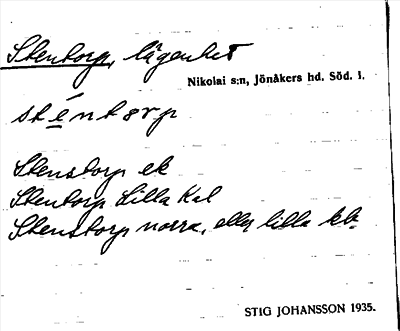 Stentorp, lägenhet
Nikolai s:n, Jönåkers hd. Söd. l.
sténtorp
Stenstorp ek
Stentorp Lilla Kal
Stenstorp norra, eller lilla kb
STIG JOHANSSON 1935.